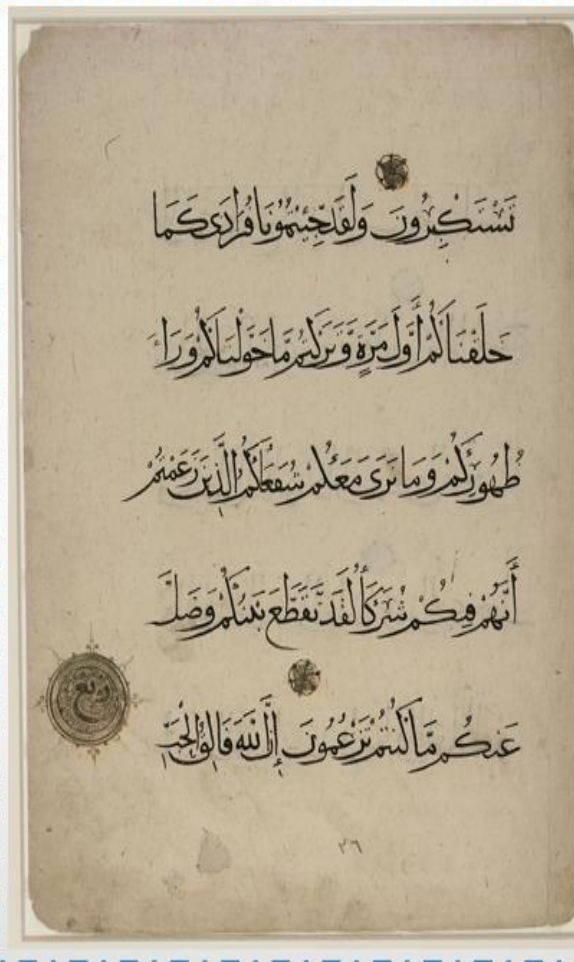 تَسْتَكْبِرُونَ وَلَقَدْ جِئْتُمُونَا فُرَادَى كَمَا
خَلَقْنَاكُمْ أَوَّلَ مَرَّةٍ وَتَرَكْتُم مَّا خَوَّلْنَاكُمْ وَرَاءَ
ظُهُورِكُمْ وَمَا نَرَى مَعَكُمْ شُفَعَاءَكُمُ الَّذِينَ زَعَمْتُمْ
أَنَّهُمْ فِيكُمْ شُرَكَاءُ لَقَد تَّقَطَّعَ بَيْنَكُمْ وَضَلَّ
ربع
عَنكُم مَّا كُنتُمْ تَزْعُمُونَ إِنَّ اللَّهَ فَالِقُ الْحَبِّ
٣٦